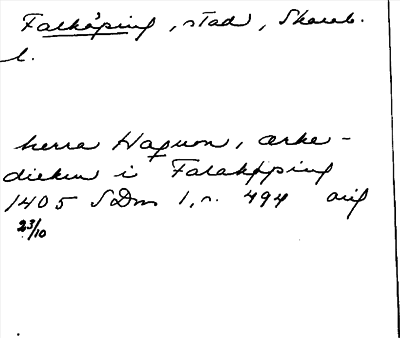 Falköping, stad, Skarab.
l.
herra Haquon, arke-
dieken i Falakøping
1405 SDns 1, n. 494 orig
23/10